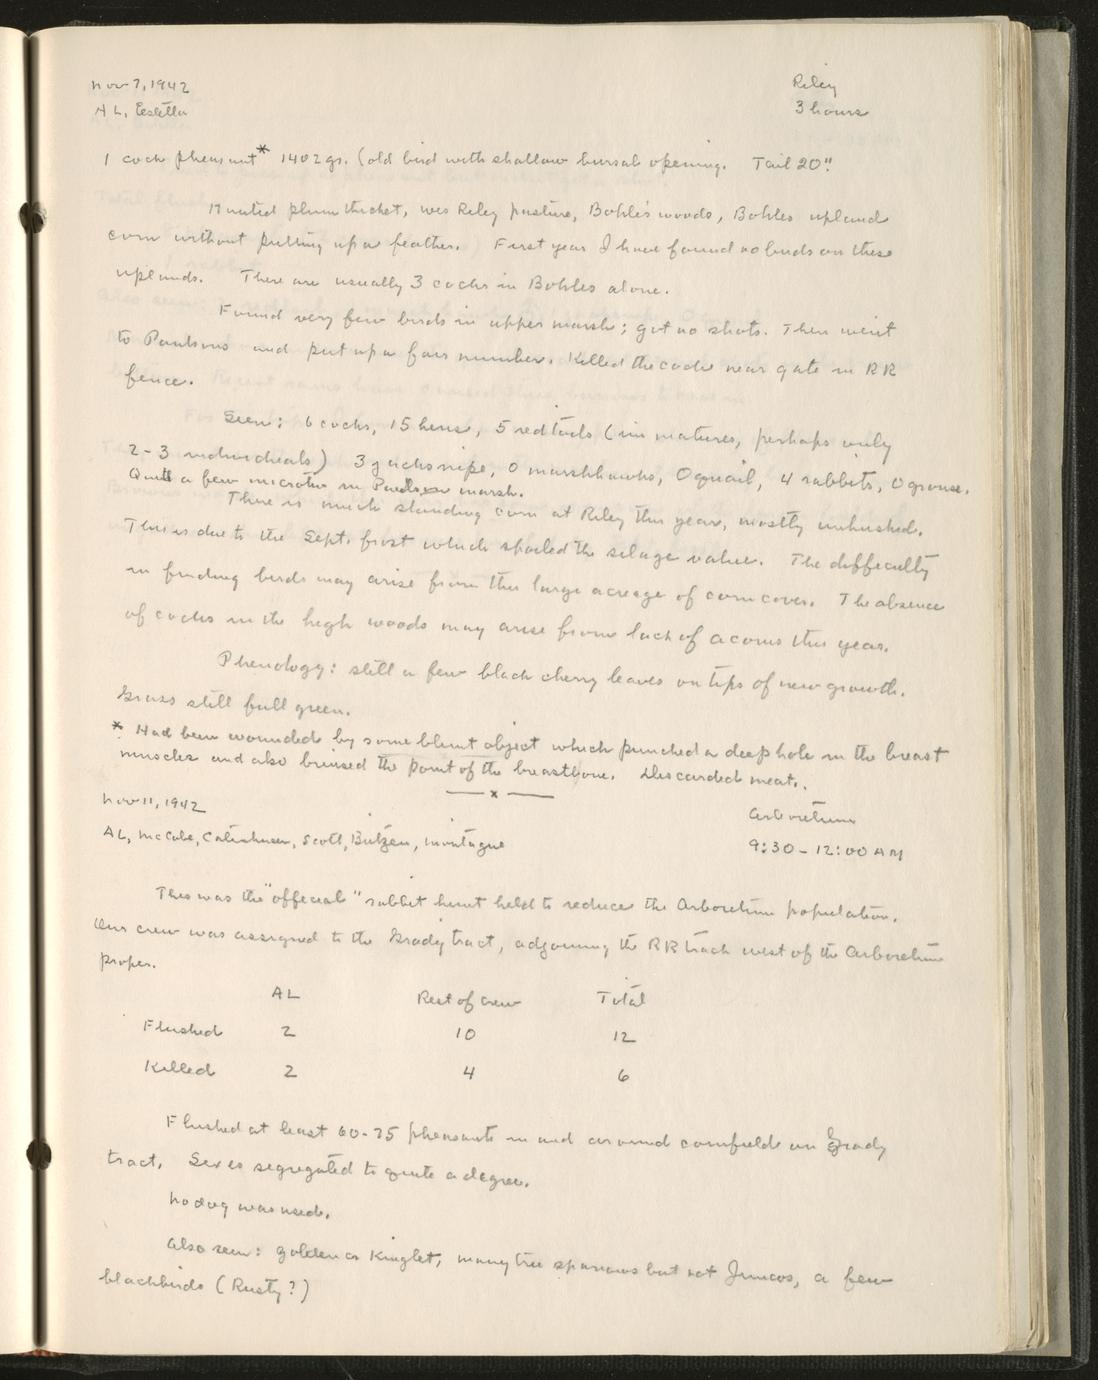 Nov 7, 1942
Riley
AL, Estella
3 hours
1 cock pheasant* 1402 gs. (old bird with shallow bursal opening. Tail 20"
Hunted plum thicket, wes Riley pasture, Bohle's woods, Bohles upland
corn without putting up a feather. First year I have found no birds on these
uplands. There are usually 3 cocks in Bohles alone.
Found very few birds in upper marsh; got no shots. Then went
to Paulsons and put up a fair number. Killed the cock near gate in RR
fence.
Seen: 6 cocks, 15 hens, 5 redtails (immatures, perhaps only
2-3 individuals) 3 jacksnipe, 0 marshhawks, 0 quail, 4 rabbits, 0 grouse.
Quite a few microtus in Paulson marsh.
There is much standing corn at Riley this year, mostly unhusked.
This is due to the Sept. frost which spoiled the silage value. The difficulty
in finding birds may arise from this large acreage of corn cover. The absence
of cocks in the high woods may arise from lack of acorns this year.
Phenology: still a few black cherry leaves on tips of new growth.
Grass still full green.
* Had been wounded by some blunt object which punched a deep hole in the breast
muscles and also bruised the point of the breastbone. Discarded meat.
—x—
Nov 11, 1942
Arboretum
AL, McCabe, Catenhusen, Scott, Butzen, Montague
9:30 - 12:00 AM
This was the "official" rabbit hunt held to reduce the Arboretum population.
Our crew was assigned to the Grady tract, adjoining the RR track west of the Arboretum
proper.
AL Rest of crew Total
Flushed 2 10 12
Killed 2 4 6
Flushed at least 60-75 pheasants in and around cornfield on Grady
tract. Sexes segregated to quite a degree.
No dog was used.
Also seen: golden cr Kinglet, many tree sparrows but not Juncos, a few
blackbirds (Rusty?)